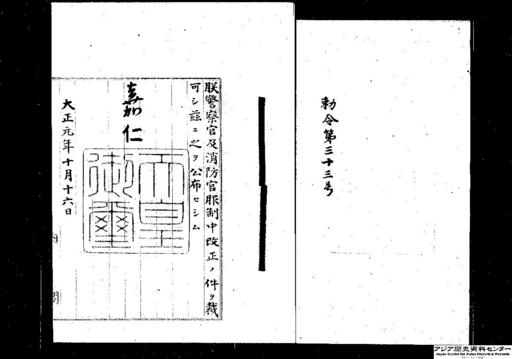 勅令第三十三号
朕警察官及消防官服制中改正ノ件ヲ裁
可シ茲ニ之ヲ公布セシム
嘉仁
天皇
御璽
大正元年十月十六日
内
閣
アジア歴史資料センター
Japan Center for Asian Historical Records